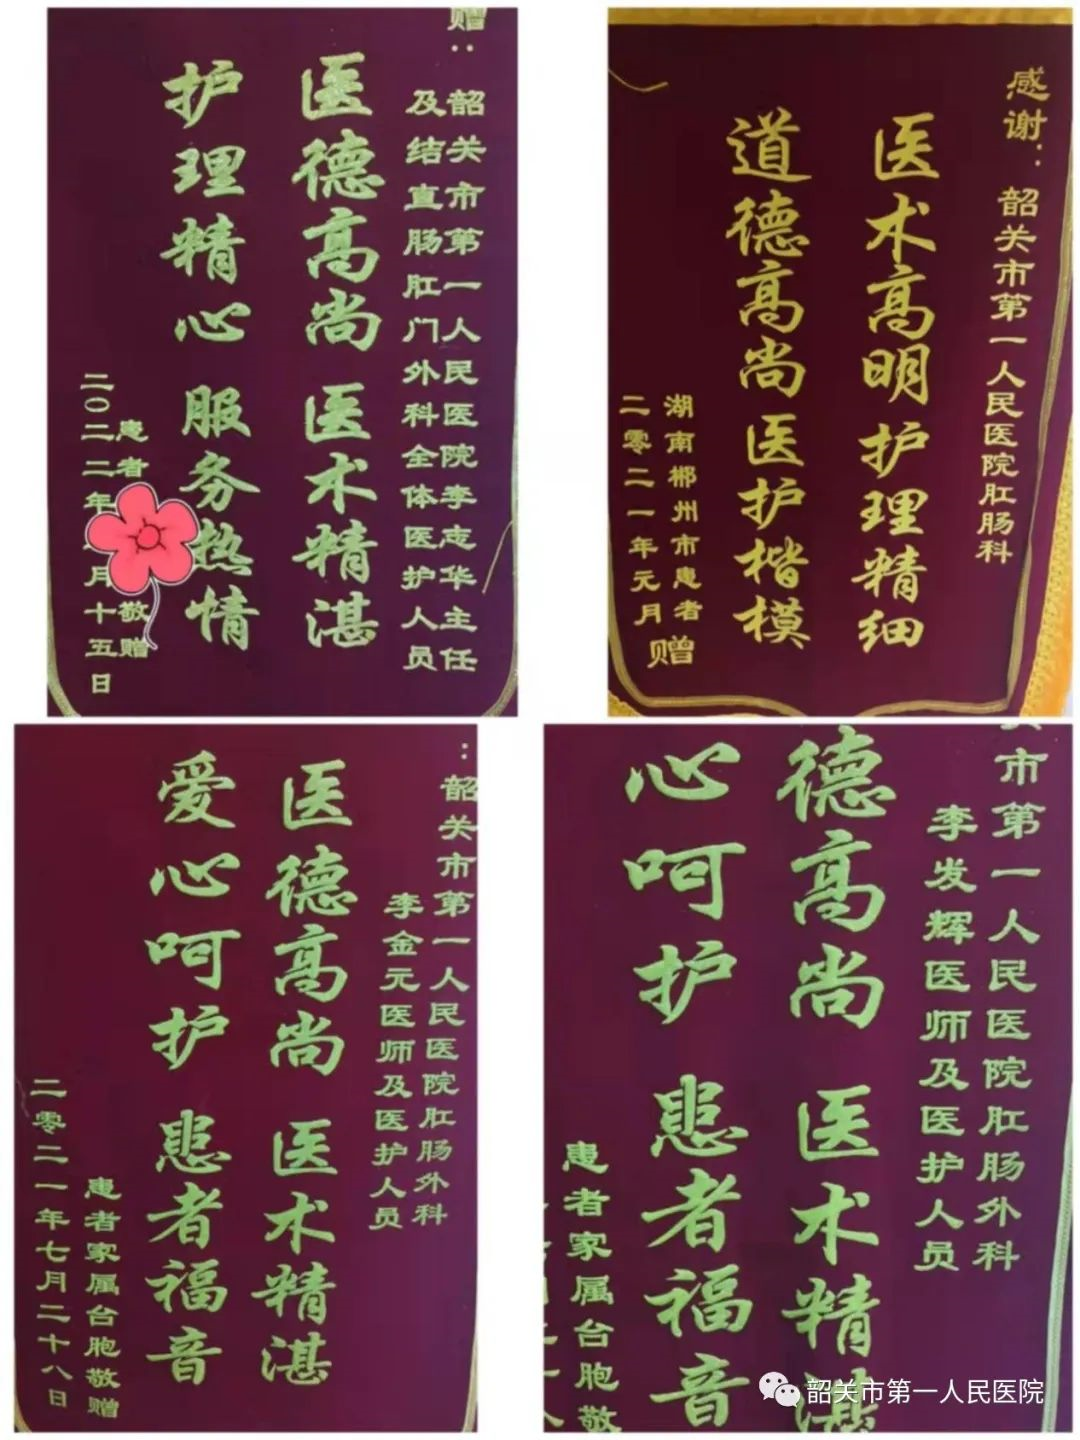 赠：韶关市第一人民医院李志华主任
及结直肠肛门外科全体医护人员
医德高尚 医术精湛
护理精心 服务热情
患者 敬赠
二〇二二年 月十五日
感谢：韶关市第一人民医院肛肠科
医术高明护理精细
道德高尚医护楷模
湖南郴州市患者赠
二零二一年元月
：韶关市第一人民医院肛肠外科
李金元医师及医护人员
医德高尚 医术精湛
爱心呵护 患者福音
患者家属台胞敬赠
二零二一年七月二十八日
市第一人民医院肛肠外科
李发辉医师及医护人员
德高尚 医术精湛
心呵护 患者福音
患者家属台胞敬
韶关市第一人民医院